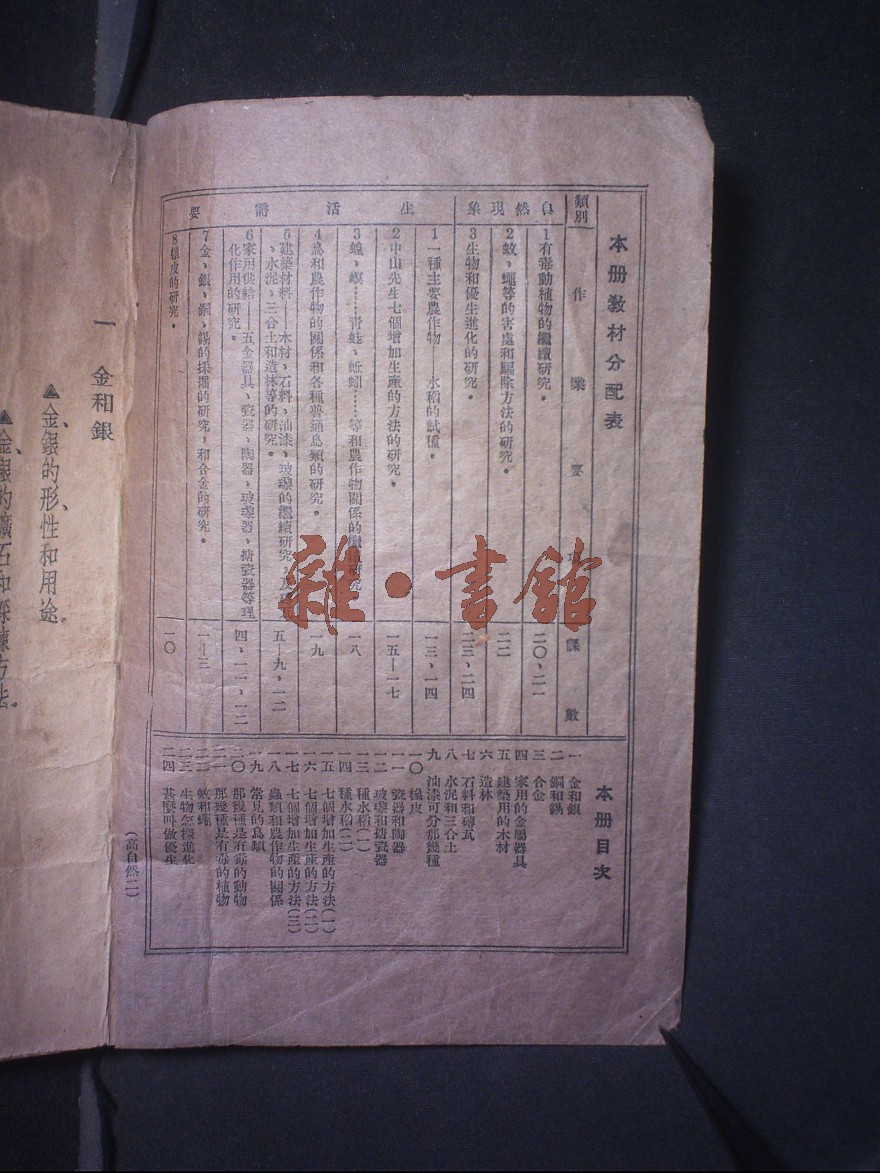 本册教材分配表
類別 作業要項 課數
自然現象
1 有毒動植物的繼續研究。 二〇、二一
2 蚊、蠅等的害處和驅除方法的研究。 二二
3 生物和優生進化的研究。 二三、二四
生活需要
1 一種主要農作物——水稻的試種。 一三、一四
2 中山先生七個增加生產的方法的研究。 一五—一七
3 蝗、螟……青蛙、蚯蚓……等和農作物關係的繼續研究 一八
4 鳥和農作物的關係和各種普通鳥類的研究。 一九
5 建築材料——木材、石料、油漆、玻璃的繼續研究、及磚瓦
、水泥、三合土和造林等的研究。 五—九、一二
6 家用供給——五金器具、瓷器、陶器、玻璃器、搪瓷器等理
化作用的研究。 四、一一、一二
7 金、銀、銅、錫的採掘的研究，和合金的研究。 一—三
8 橡皮的研究。 一〇
本册目次
一 金和銀
二 銅和錫
三 合金
四 家用的金屬器具
五 建築用的木材
六 造林
七 石料和磚瓦
八 水泥和三合土
九 油漆可分那幾種
一〇 橡皮
一一 瓷器和陶器
一二 玻璃和搪瓷器
一三 種水稻(一)
一四 種水稻(二)
一五 七個增加生產的方法(一)
一六 七個增加生產的方法(二)
一七 七個增加生產的方法(三)
一八 蟲類和農作物的關係
一九 常見的鳥類
二〇 那幾種是有毒的動物
二一 那幾種是有毒的植物
二二 蚊和蠅
二三 生物怎樣進化
二四 甚麼叫做優生
(高自然二)
一 金和銀
▲金、銀的形、性和用途。
▲金、銀的礦石和採鍊方法。
雜·書館